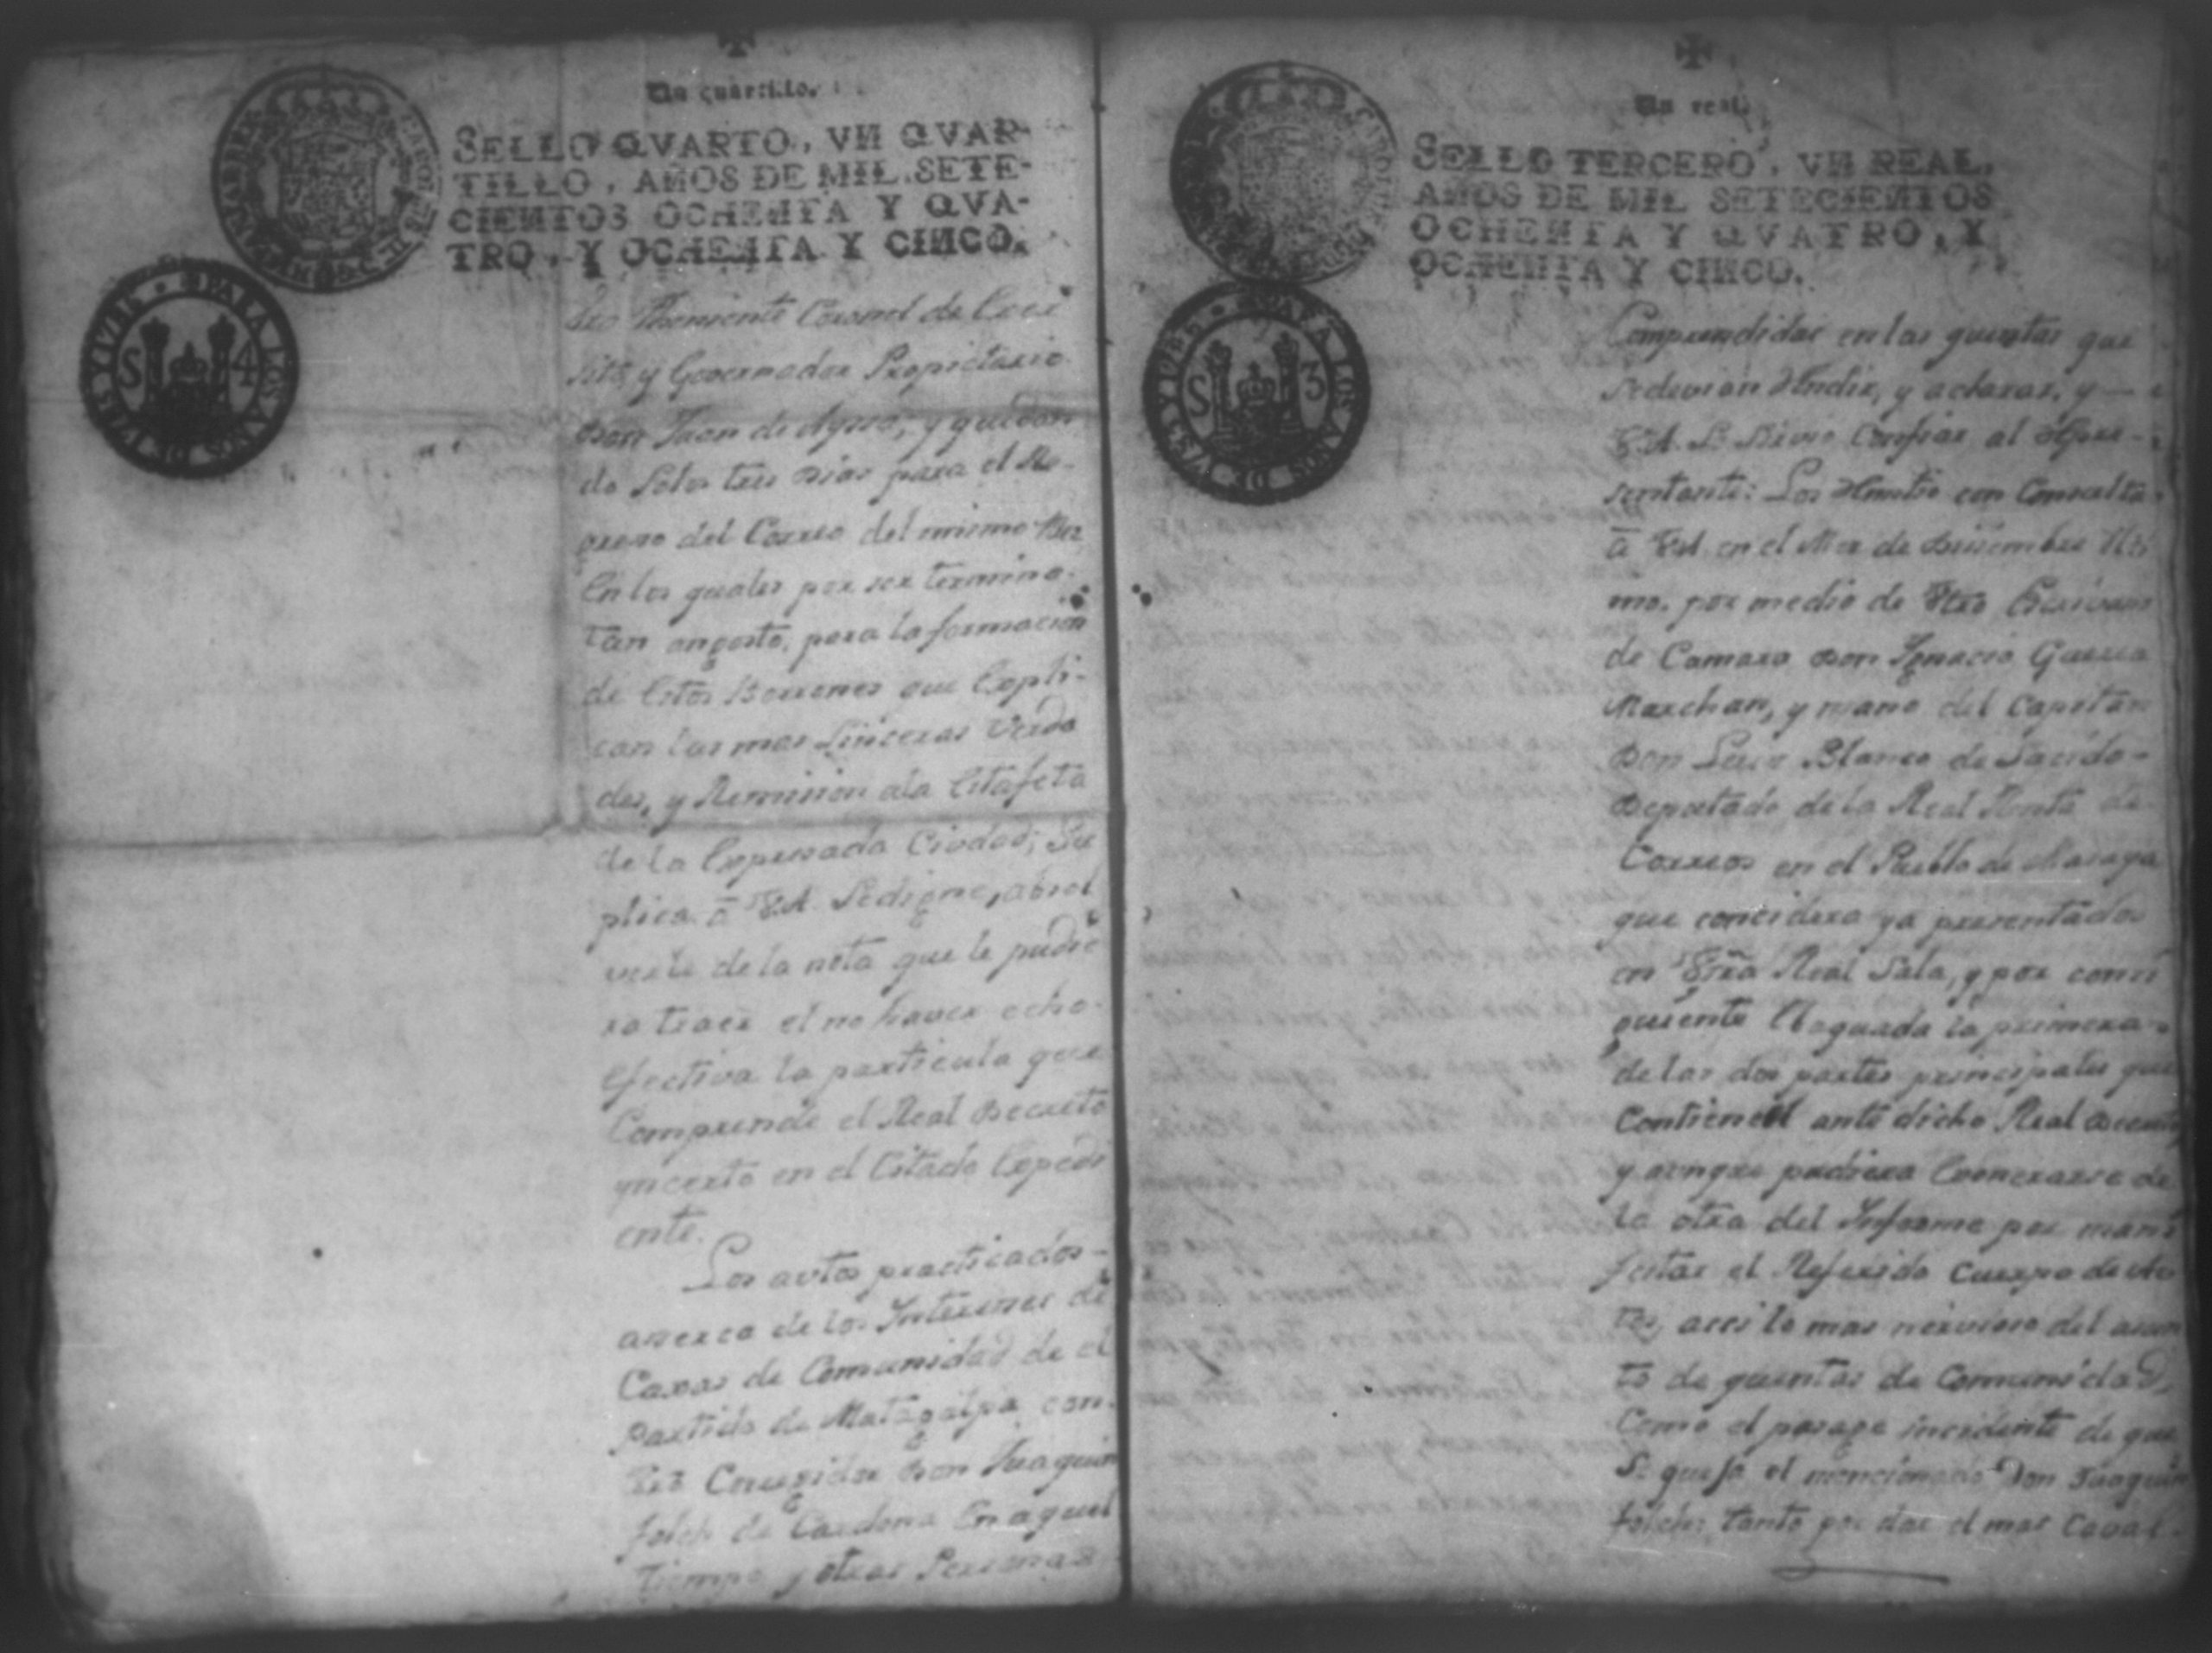 Un quartillo.
SELLO QVARTO, VN QVAR-
TILLO, AÑOS DE MIL SETE-
CIENTOS OCHENTA Y QVA-
TRO, Y OCHENTA Y CINCO.
PARA LOS AÑOS DE 1785 Y 1786
S 4
tro Theniente Coronel de Exer
sito, y Governador Propietario
Don Juan de Aysa, y quedan
do solos tres dias para el Re-
greso del Correo del mismo Mes
En los quales por ser termino
tan angosto, para la formacion
de Estos Borrones que Expli-
can las mas sinceras Verda
des, y Remision ala Estafeta
de la Expresada Ciudad; Su
plica â V.A. se digne, absol
verle de la nota que le pudie
ra traer el no haver echo
efectiva la particula que
Comprende el Real Decreto
yncerto en el Citado Expedi
ente.
Los autos practicados
aserca de los Intereses de
Caxas de Comunidad de el
Partido de Matagalpa con
Corregidor Don Juaquin
folch de Cardona En aquel
tiempo y otras Personas
Un real
SELLO TERCERO, VN REAL,
AÑOS DE MIL SETECIENTOS
OCHENTA Y QVATRO, Y
OCHENTA Y CINCO.
PARA LOS AÑOS DE 1785 Y 1786
S 3
Comprendidas en las quentas que
se devian Rendir, y aclarar, y
V.A. se sirvio Confiar al Repre-
sentante: Los Rmitio con Consulta
â V.A. en el Mes de Disiembre Ulti
mo. por medio de Vtro Escrivano
de Camara Don Ignacio Guerra
Marchan, y mano del Capitan
Don Luis Blanco de Sacido
Deputado de la Real Renta de
Correos en el Pueblo de Masaya
que concidera ya presentados
en Vtra Real Sala, y por consi
guiente Evaquada la primera
de las dos partes principales que
Contiene el ante dicho Real Decreto
y aunque pudiera Exonerarse de
la otra del Informe por mani
festar el Referido Cuerpo de Au
tos, assi lo mas nervioso del asun
to de quentas de Comunidad,
Como el pasage incidente de que
Se queja el mencionado Don Juaquin
folch, tanto por dar el mas Caval